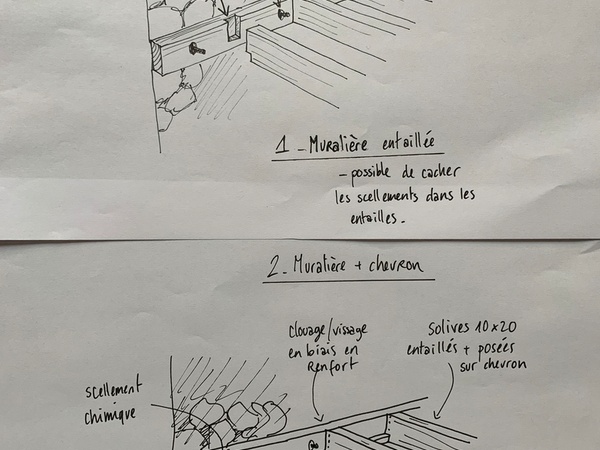 1 - Muralière entaillée
- possible de cacher
les scellements dans les
entailles.
2. Muralière + chevron
Clouage/vissage
en biais en
Renfort
Solives 10x20
entaillés + posées
sur chevron
scellement
chimique